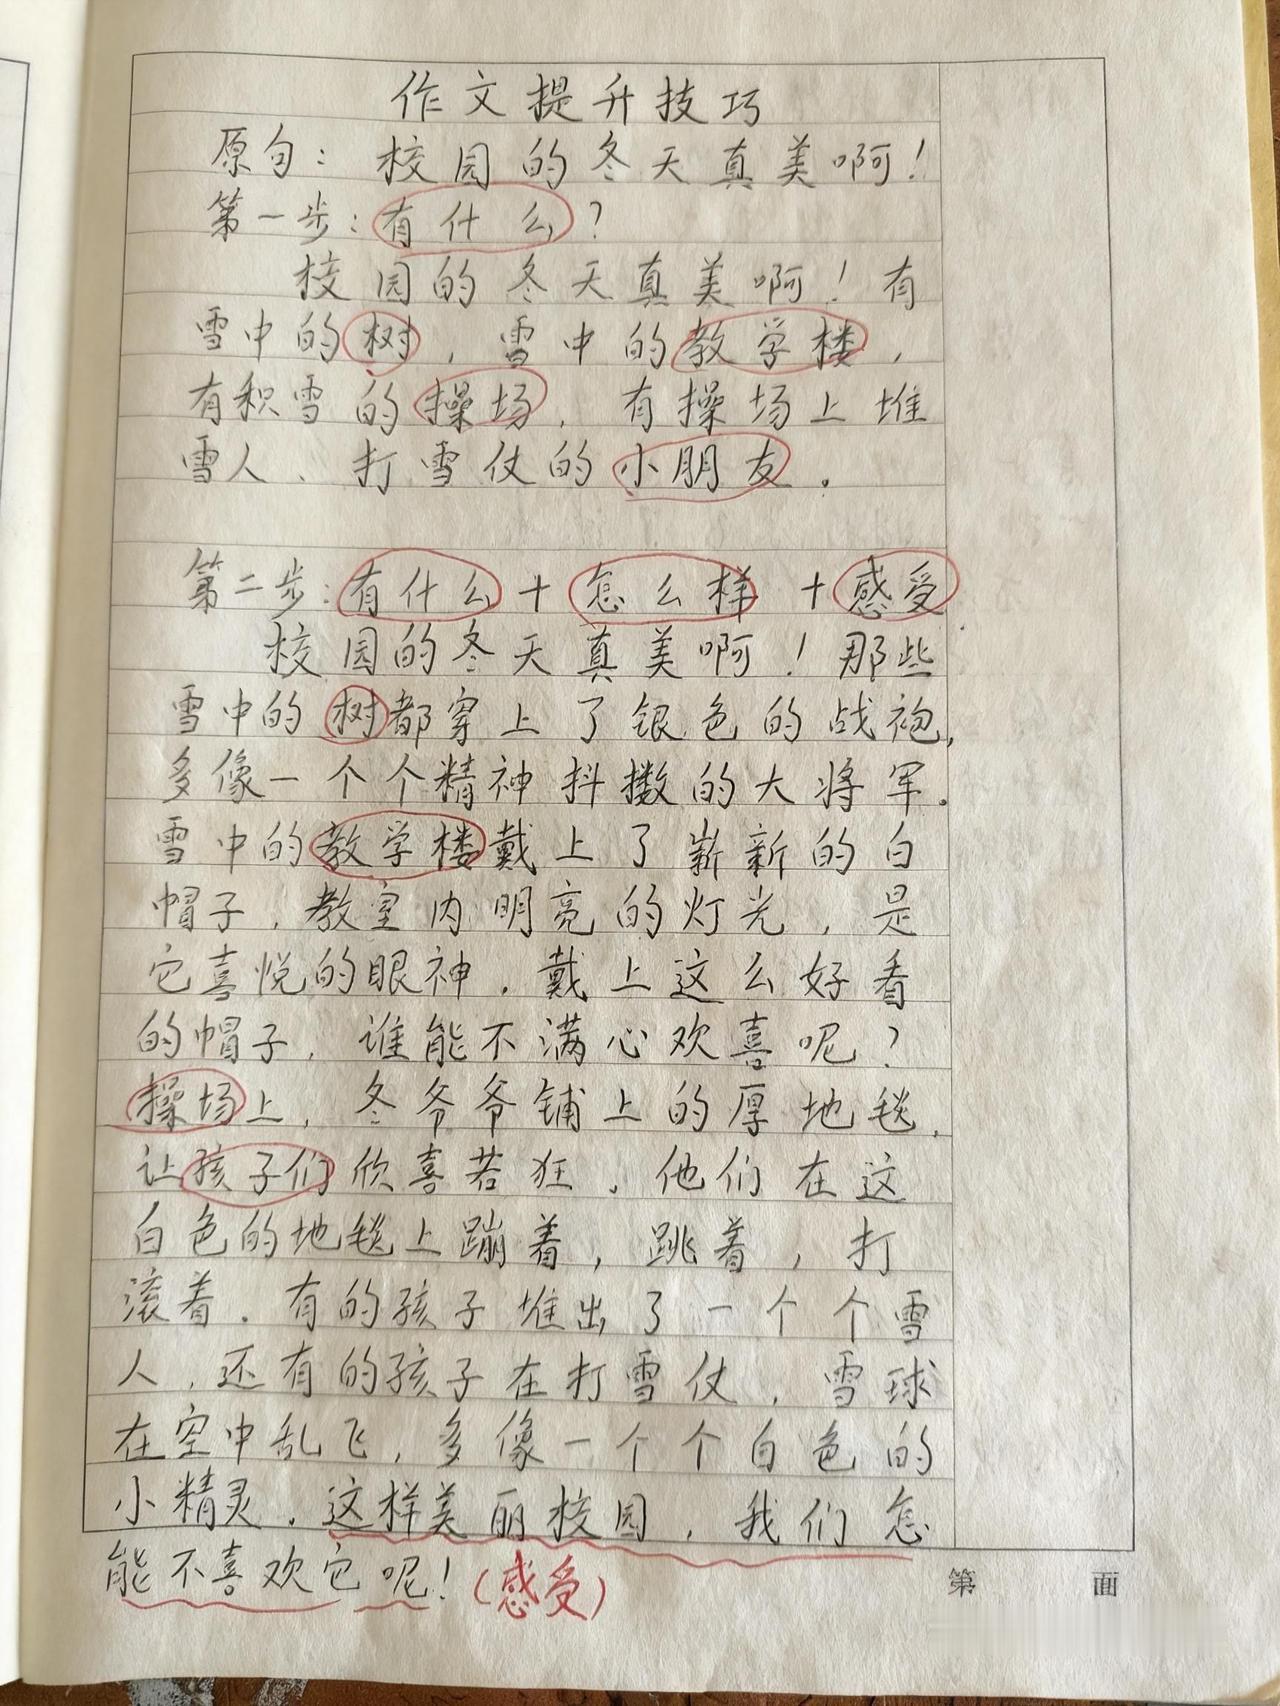 作文提升技巧
原句：校园的冬天真美啊！
第一步：有什么？
校园的冬天真美啊！有
雪中的树，雪中的教学楼，
有积雪的操场，有操场上堆
雪人、打雪仗的小朋友。
第二步：有什么＋怎么样＋感受
校园的冬天真美啊！那些
雪中的树都穿上了银色的战袍，
多像一个个精神抖擞的大将军。
雪中的教学楼戴上了崭新的白
帽子，教室内明亮的灯光，是
它喜悦的眼神。戴上这么好看
的帽子，谁能不满心欢喜呢？
操场上，冬爷爷铺上的厚地毯，
让孩子们欣喜若狂。他们在这
白色的地毯上蹦着，跳着，打
滚着。有的孩子堆出了一个个雪
人，还有的孩子在打雪仗，雪球
在空中乱飞，多像一个个白色的
小精灵。这样美丽校园，我们怎
能不喜欢它呢！（感受）
第 面